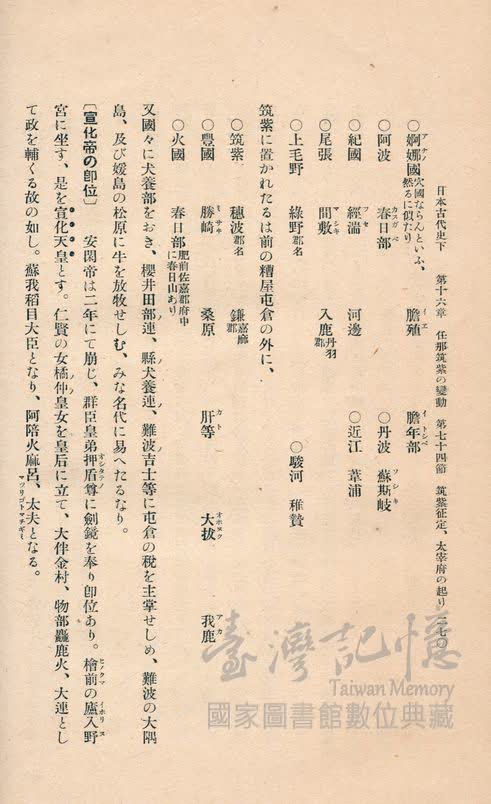 日本古代史下 第十六章 任那筑紫の變動 第七十四節 筑紫征定、太宰府の起り 二七〇
○婀娜國 穴國ならんといふ、然るに似たり 膽殖 膽年部
アナノ イヱ イトシベ
○阿波 春日部 ○丹波 蘇斯岐
カスガベ ソシキ
○紀國 經湍 河邊 ○近江 葦浦
フセ
○尾張 間敷 入鹿 丹羽郡
マシキ
○上毛野 綠野 郡名 ○駿河 稚贄
筑紫に置かれたるは前の糟屋屯倉の外に、
○筑紫 穗波 郡名 鎌 嘉麻郡
○豐國 勝崎 桑原 肝等 大拔 我鹿
ミサキ カト オホヌク アカ
○火國 春日部 肥前佐嘉郡府中に春日山あり
又國々に犬養部をおき、櫻井田部連、縣犬養連、難波吉士等に屯倉の稅を主掌せしめ、難波の大隅
島、及び媛島の松原に牛を放牧せしむ、みな名代に易へたるなり。
〔宣化帝の卽位〕 安閑帝は二年にて崩じ、群臣皇弟押盾尊に劍鏡を奉り卽位あり。檜前の廬入野
オシタテノ ヒノクマ イホリヌ
宮に坐す、是を宣化天皇とす。仁賢の女橘仲皇女を皇后に立て、大伴金村、物部麤鹿火、大連とし
て政を輔くる故の如し。蘇我稻目大臣となり、阿陪火麻呂、太夫となる。
マツリゴトマチギミ
臺灣記憶
Taiwan Memory
國家圖書館數位典藏